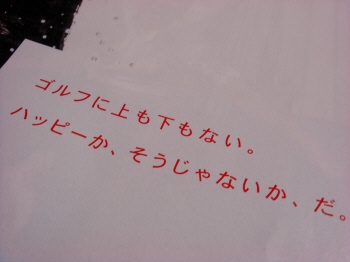 ゴルフに上も下もない。
ハッピーか、そうじゃないか、だ。